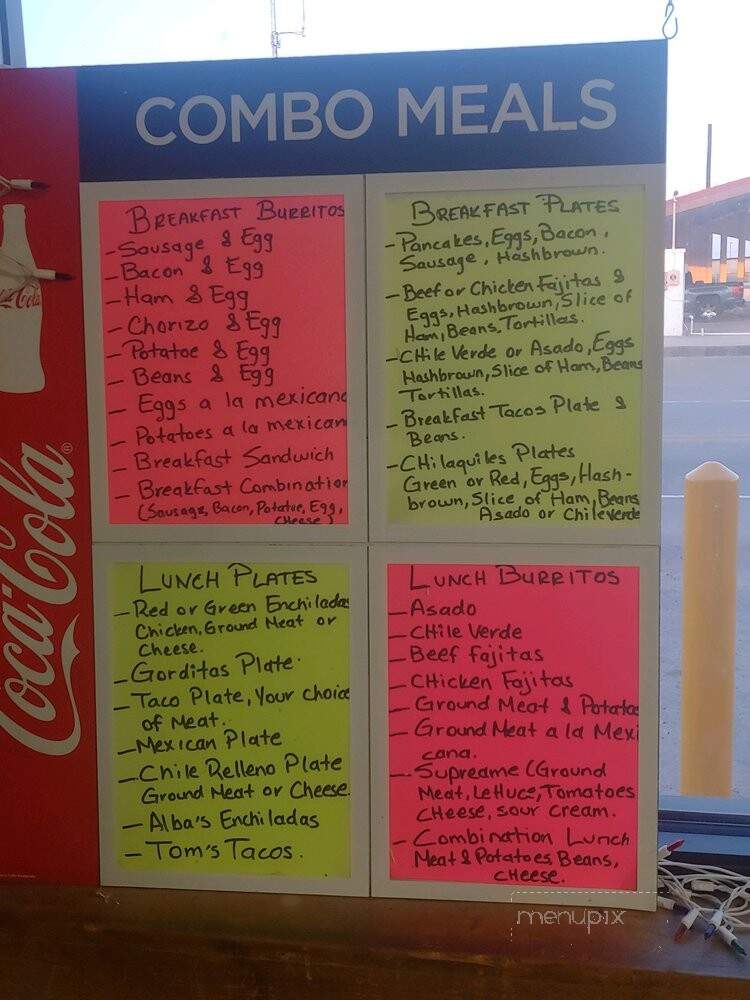 COMBO MEALS
BREAKFAST BURRITOS
- Sausage & Egg
- Bacon & Egg
- Ham & Egg
- Chorizo & Egg
- Potatoe & Egg
- Beans & Egg
- Eggs a la mexicana
- Potatoes a la mexican
- Breakfast Sandwich
- Breakfast Combination
(Sausage, Bacon, Potatoe, Egg,
CHeese)
BREAKFAST PLATES
- Pancakes, Eggs, Bacon,
Sausage, Hashbrown.
- Beef or Chicken Fajitas &
Eggs, Hashbrown, Slice of
Ham, Beans, Tortillas.
- CHile Verde or Asado, Eggs
Hashbrown, Slice of Ham, Beans
Tortillas.
- Breakfast Tacos Plate &
Beans.
- CHilaquiles Plates
Green or Red, Eggs, Hash-
brown, Slice of Ham, Beans
Asado or Chile Verde
LUNCH PLATES
- Red or Green Enchiladas
Chicken, Ground Meat or
Cheese.
- Gorditas Plate.
- Taco Plate, Your choice
of Meat.
- Mexican Plate
- Chile Relleno Plate
Ground Meat or Cheese.
- Alba's Enchiladas
- Tom's Tacos.
LUNCH BURRITOS
- Asado
- CHile Verde
- Beef fajitas
- CHicken Fajitas
- Ground Meat & Potatoe
- Ground Meat a la Mexi
cana.
- Supreame (Ground
Meat, Lettuce, Tomatoes
CHeese, sour cream.
- Combination Lunch
Meat & Potatoes, Beans,
CHeese.
Coca-Cola
Coca-Cola
menupix